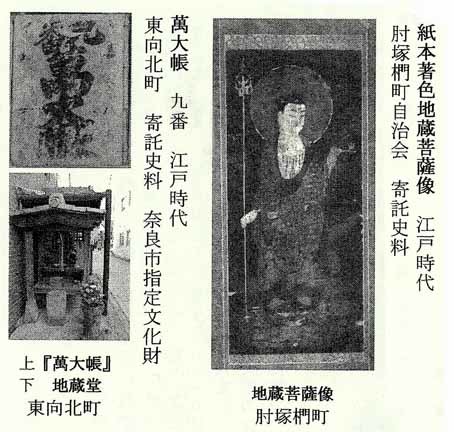 紙本著色地蔵菩薩像　江戸時代
肘塚椚町自治会　寄託史料
地蔵菩薩像
肘塚椚町
萬大帳　九番　江戸時代
東向北町　寄託史料　奈良市指定文化財
九番
萬大帳
上『萬大帳』
下　地蔵堂
東向北町